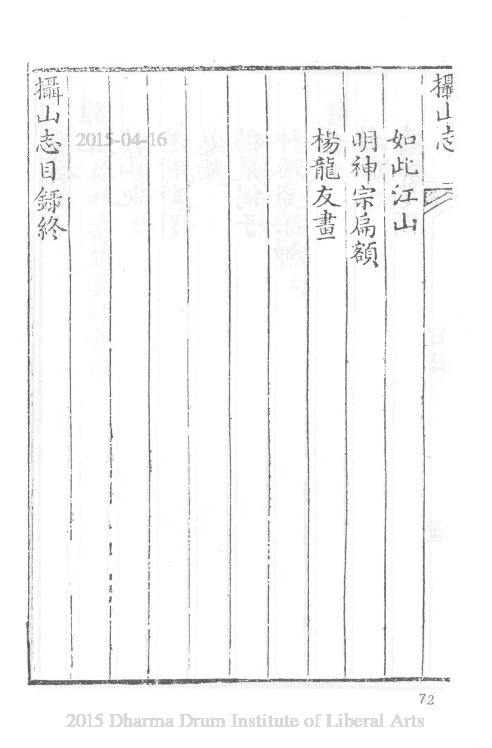 攝山志
如此江山
明神宗扁額
楊龍友畫
攝山志目録終
2015-04-16
72
2015 Dharma Drum Institute of Liberal Arts